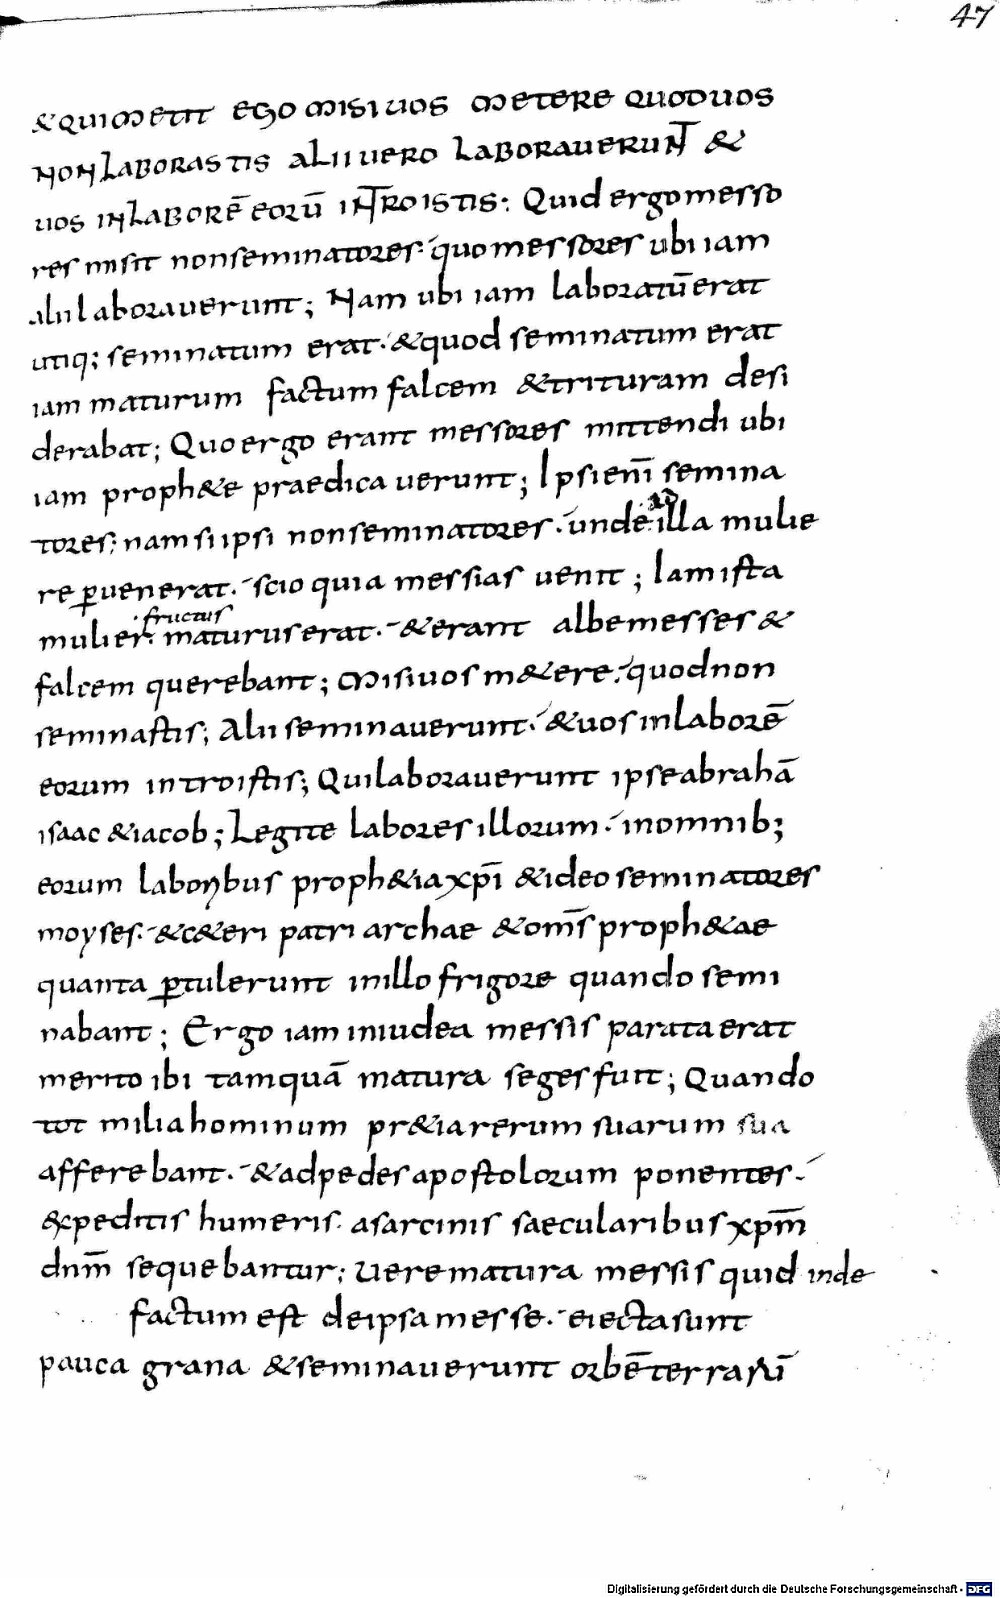 47
&qui metit ego misi uos metere quod uos
non laborastis alii uero laborauerunt &
uos in laborē eorū introistis: Quid ergo messo
res misit non seminatores. quo messores ubi iam
alii laborauerunt; Nam ubi iam laboratū erat
utiq; seminatum erat. & quod seminatum erat
iam maturum factum falcem & trituram desi
derabat; Quo ergo erant messores mittendi ubi
iam proph&e praedicauerunt; Ipsi enī semina
tores; nam si ipsi non seminatores. unde ad illa mulie
re ꝑuenerat. scio quia messias uenit; Iam ista
mulier fructus maturus erat. & erant albe messes &
falcem querebant; Misi uos m&ere. quod non
seminastis; Alii seminauerunt. & uos in laborē
eorum introistis; Qui laborauerunt ipse abrahā
isaac & iacob; Legite labores illorum. in omnib;
eorum laboribus proph&ia xp̄i & ideo seminatores
moyses. & c&eri patriarchae & om̄s proph&ae
quanta ꝑtulerunt in illo frigore quando semi
nabant; Ergo iam in iudea messis parata erat
merito ibi tamquā matura seges fuit; Quando
tot milia hominum pr&ia rerum suarum sua
afferebant. & ad pedes apostolorum ponentes.
&xpeditis humeris. a sarcinis saecularibus xpm̄
dnm̄ sequebantur; Uere matura messis quid inde
factum est de ipsa messe. eiecta sunt
pauca grana & seminauerunt orbē terrarū
Digitalisierung gefördert durch die Deutsche Forschungsgemeinschaft - DFG